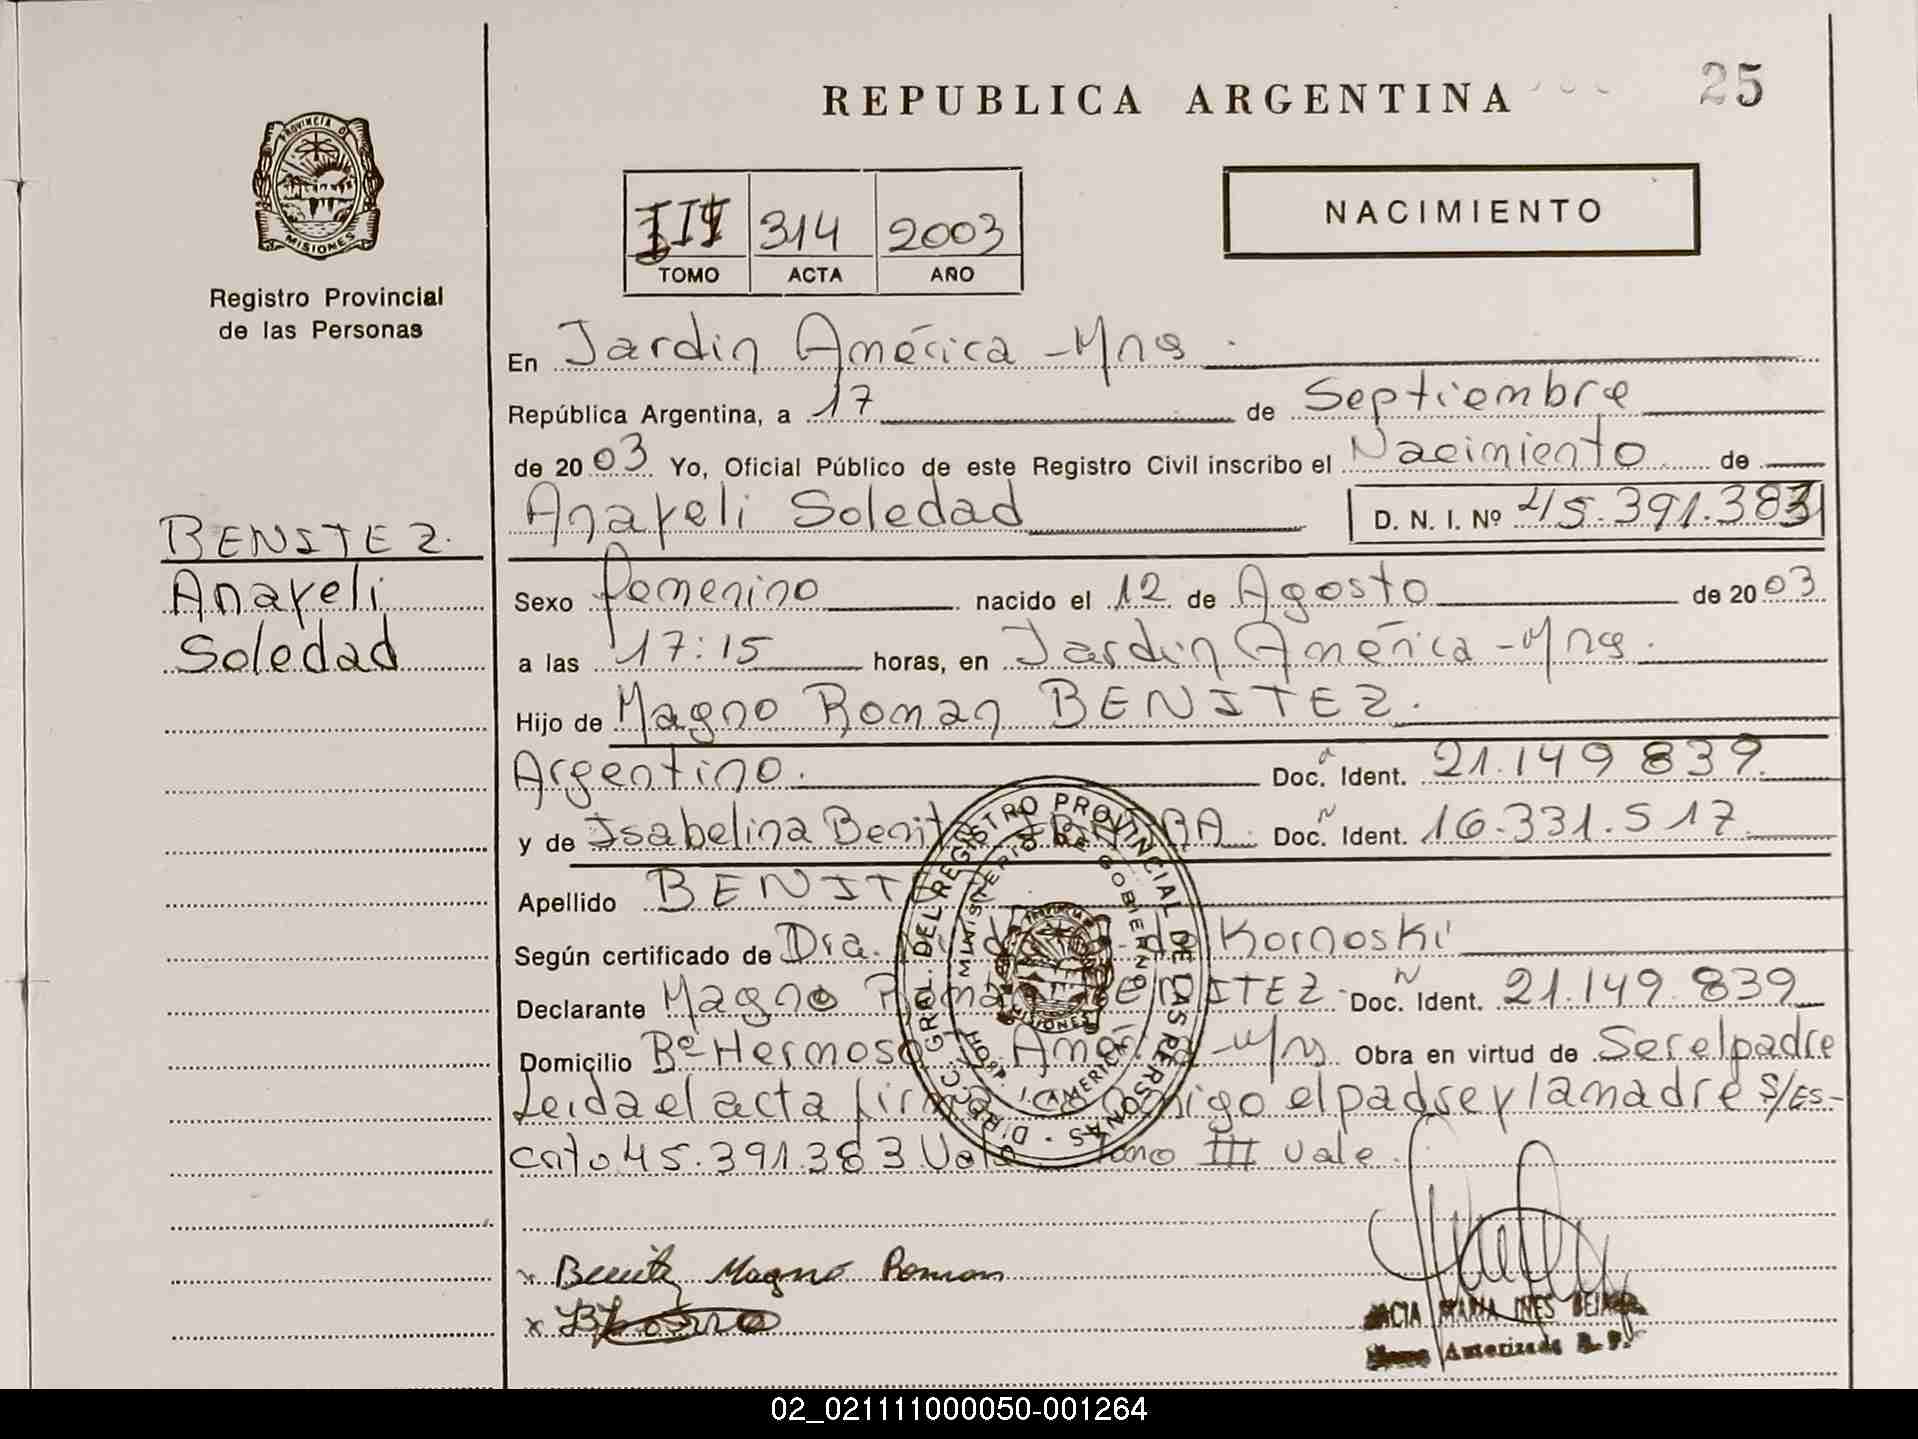 REPUBLICA ARGENTINA
25
PROVINCIA D
MISIONES
Registro Provincial
de las Personas
III 314 2003
TOMO ACTA AÑO
NACIMIENTO
En Jardin América - Mns
República Argentina, a 17 de Septiembre
de 2003 Yo, Oficial Público de este Registro Civil inscribo el Nacimiento de
Anayeli Soledad D. N. I. Nº 45.391.383
BENITEZ.
Anayeli
Soledad
Sexo femenino nacido el 12 de Agosto de 2003
a las 17:15 horas, en Jardin América - Mns.
Hijo de Magno Roman BENITEZ.
Argentino. Doc. Ident. 21.149 839
y de Isabelina Benit Doc. Ident. 16.331.517
Apellido BENIT
Según certificado de Dra. de Kornoski
Declarante Magno BENITEZ Doc. Ident. 21.149 839
Domicilio Bº Hermoso Amé Mns Obra en virtud de Ser el padre
Leida el acta firma conmigo el padre y la madre S/Es-
cnto 45.391.383 Vale Tomo III vale.
DIRECC. GRAL. DEL REGISTRO PROVINCIAL DE LAS PERSONAS
MINISTERIO DE GOBIERNO
HOSP. J. AMERICA
MISIONES
x Benitez Magno Roman
x
MARIA INES
Autorizada R. P.
02_021111000050-001264